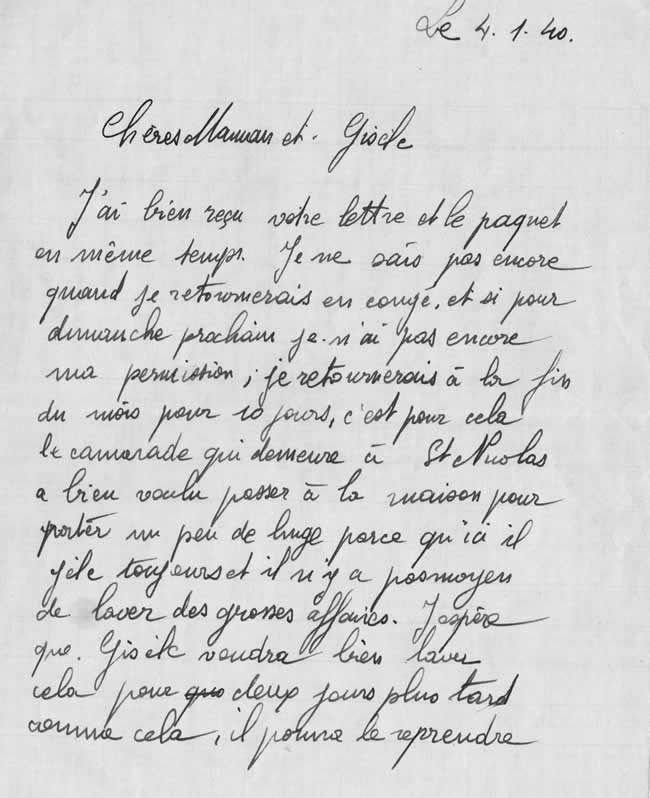 Le 4.1.40.
Chères Maman et. Gisèle
J'ai bien reçu votre lettre et le paquet
en même temps. Je ne sais pas encore
quand je retournerais en congé, et si pour
dimanche prochain je n'ai pas encore
ma permission ; je retournerais à la fin
du mois pour 10 jours, c'est pour cela
le camarade qui demeure à St Nicolas
a bien voulu passer à la maison pour
porter un peu de linge parce qu'ici il
gèle toujours et il n'y a pas moyen
de laver des grosses affaires. J'espère
que. Gisèle voudra bien laver
cela pour que deux jours plus tard
comme cela, il pourra le reprendre